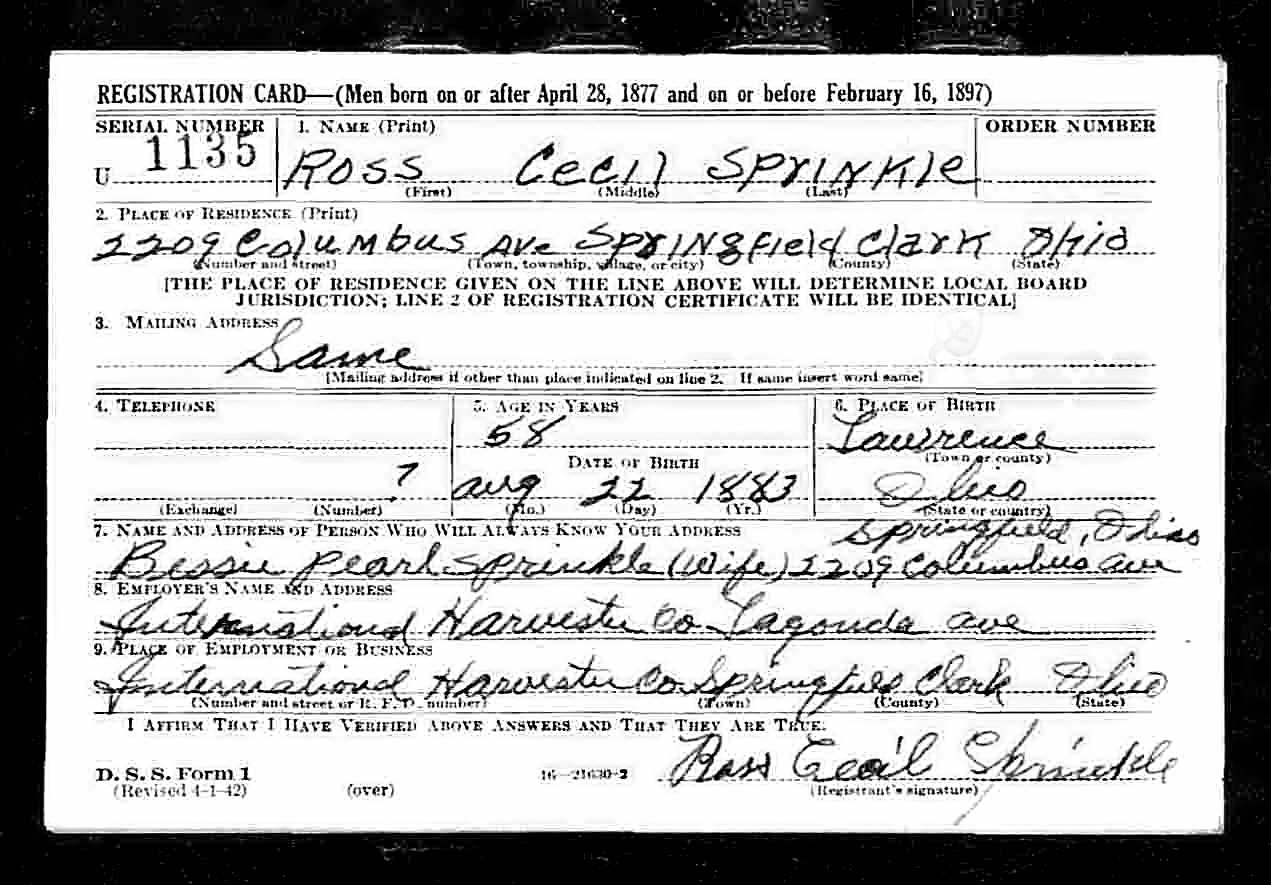 REGISTRATION CARD—(Men born on or after April 28, 1877 and on or before February 16, 1897)
SERIAL NUMBER 1. NAME (Print) ORDER NUMBER
U 1135 Ross Cecil Sprinkle
(First) (Middle) (Last)
2. PLACE OF RESIDENCE (Print)
2209 Columbus Ave Springfield Clark Ohio
(Number and street) (Town, township, village, or city) (County) (State)
[THE PLACE OF RESIDENCE GIVEN ON THE LINE ABOVE WILL DETERMINE LOCAL BOARD
JURISDICTION; LINE 2 OF REGISTRATION CERTIFICATE WILL BE IDENTICAL]
3. MAILING ADDRESS
Same
[Mailing address if other than place indicated on line 2. If same insert word same]
4. TELEPHONE 5. AGE IN YEARS 6. PLACE OF BIRTH
58 Lawrence
DATE OF BIRTH (Town or county)
? Aug 22 1883 Ohio
(Exchange) (Number) (Mo.) (Day) (Yr.) (State or country)
7. NAME AND ADDRESS OF PERSON WHO WILL ALWAYS KNOW YOUR ADDRESS Springfield, Ohio
Bessie Pearl Sprinkle (Wife) 2209 Columbus Ave
8. EMPLOYER'S NAME AND ADDRESS
International Harvester Co Lagonda ave
9. PLACE OF EMPLOYMENT OR BUSINESS
International Harvester Co. Springfield Clark Ohio
(Number and street or R. F. D. number) (Town) (County) (State)
I AFFIRM THAT I HAVE VERIFIED ABOVE ANSWERS AND THAT THEY ARE TRUE.
Ross Cecil Sprinkle
D. S. S. Form 1 16—21630-2
(Revised 4-1-42) (over) (Registrant's signature)